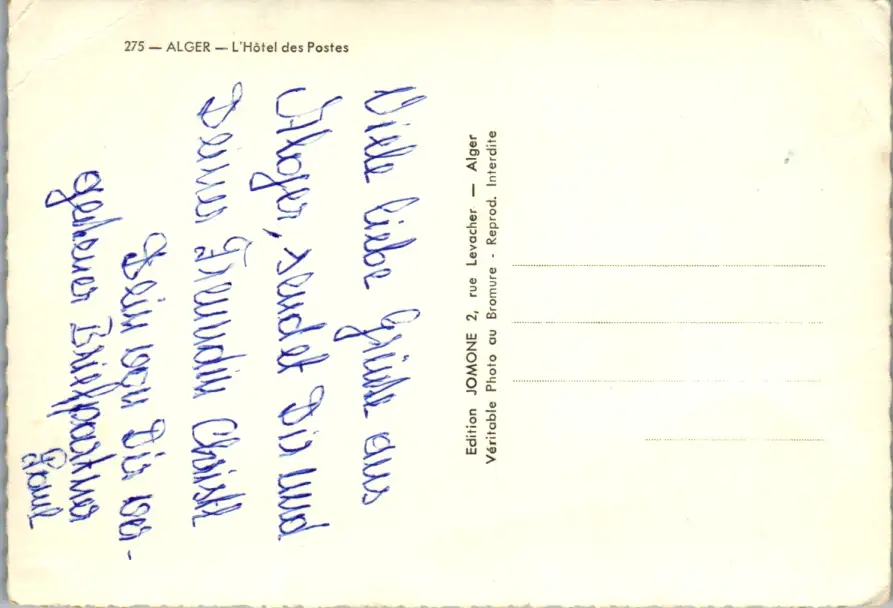 275 — ALGER — L'Hôtel des Postes
Viele liebe Grüße aus
Alger, sendet Dir und
Deiner Freundin Christl
Dein von Dir ver-
gessener Briefpartner
Edition JOMONE 2, rue Levacher — Alger
Véritable Photo au Bromure - Reprod. Interdite